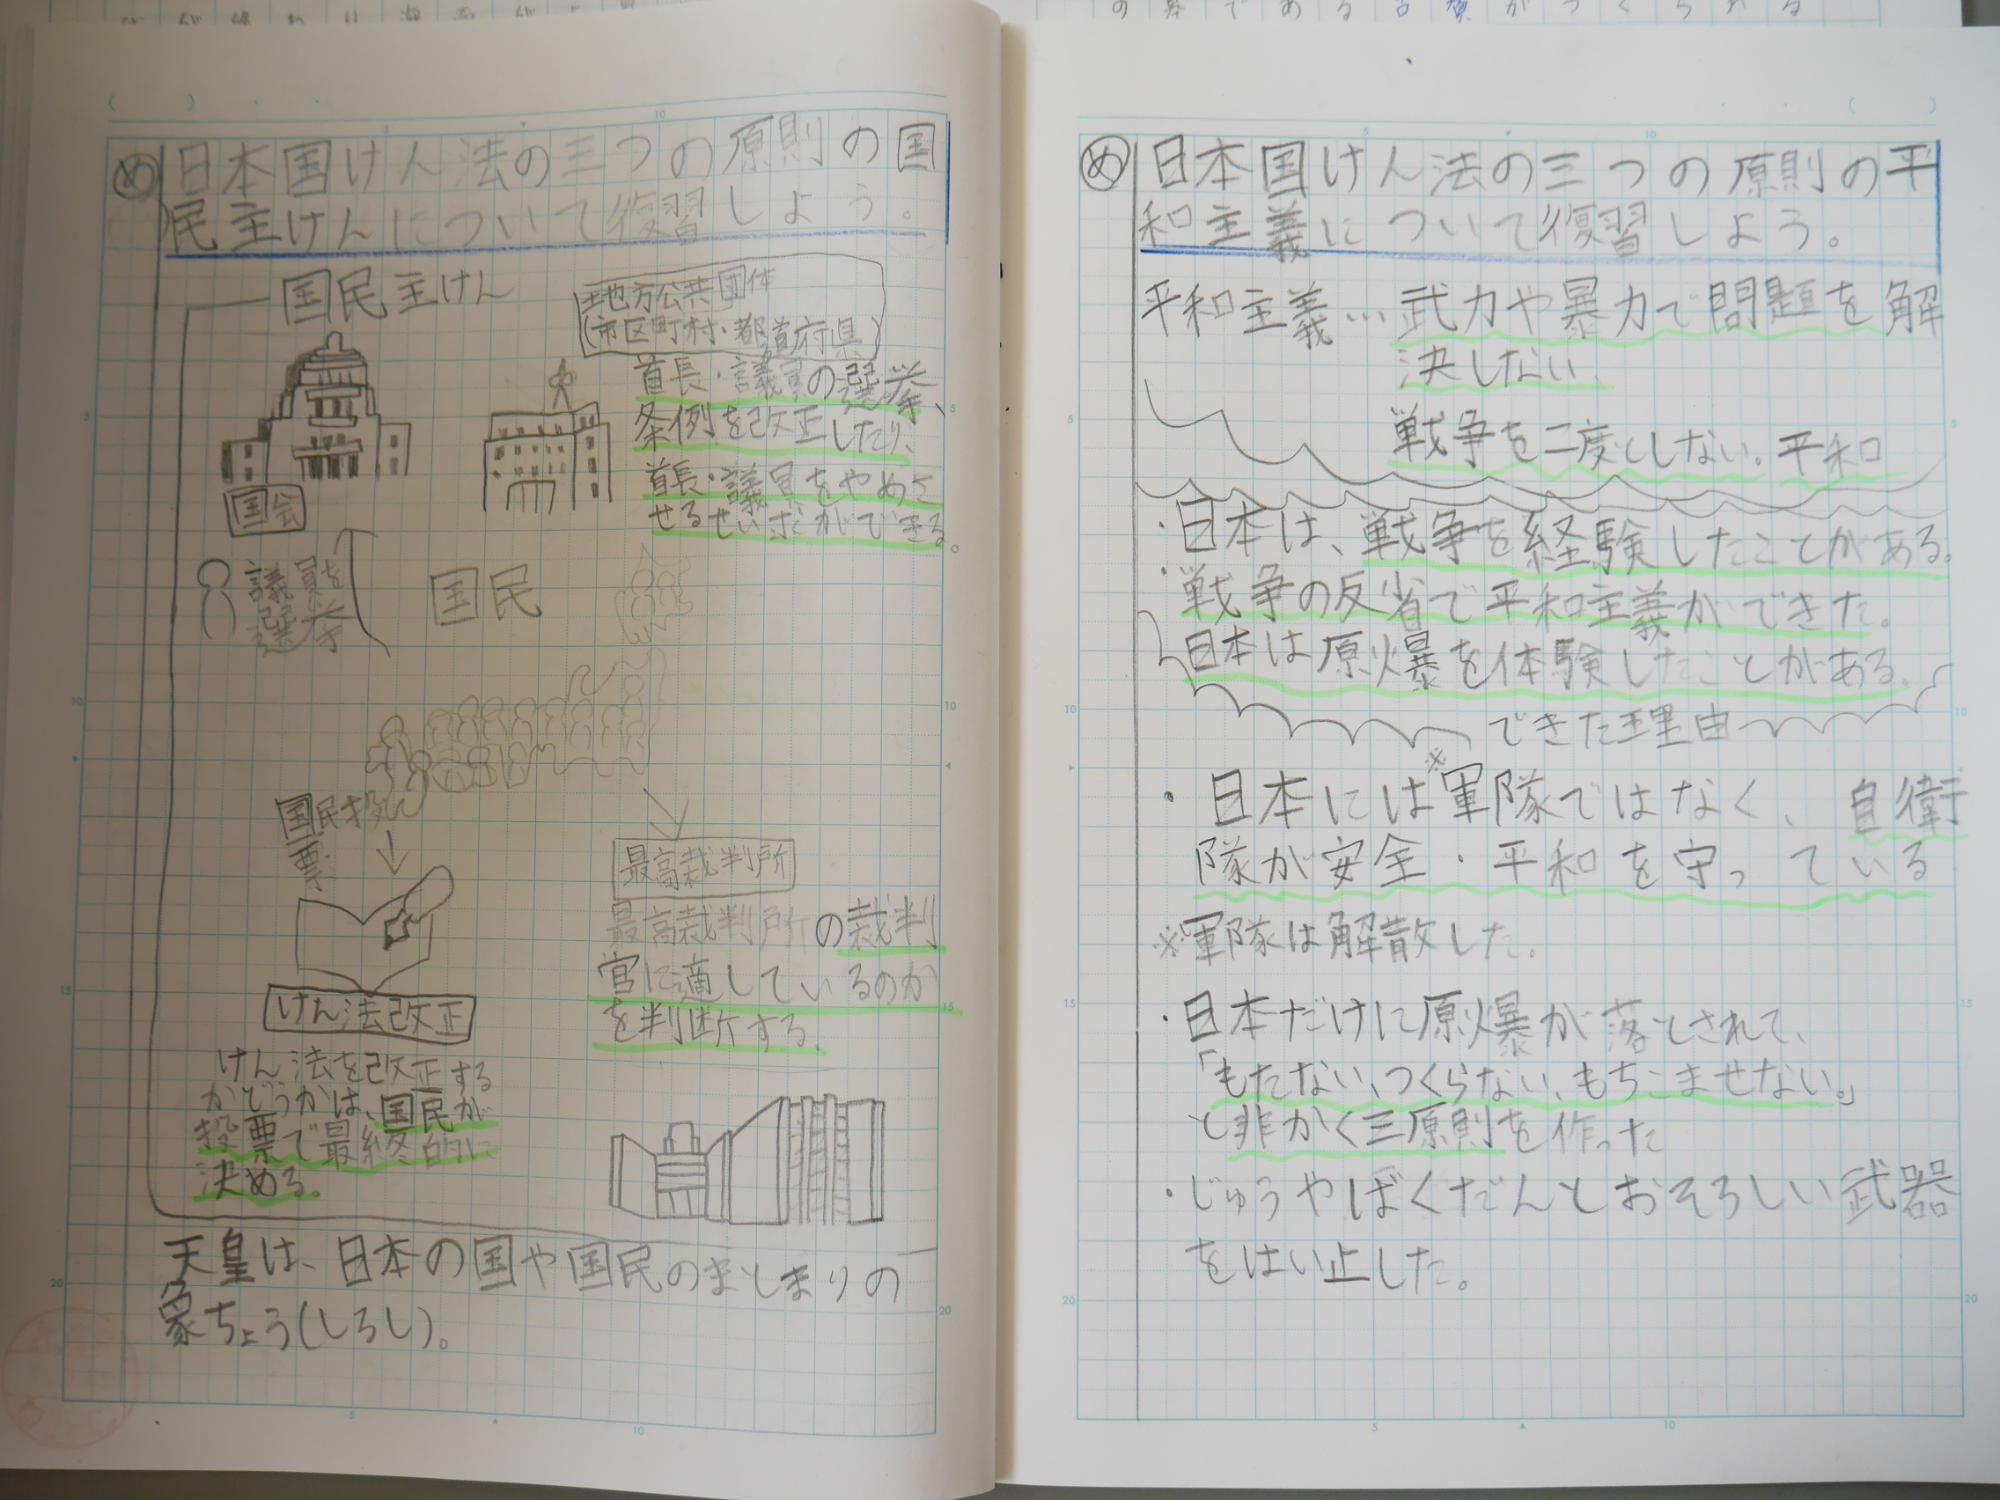 め 日本国けん法の三つの原則の国
民主けんについて復習しよう。
国民主けん
地方公共団体
(市区町村・都道府県)
首長・議員の選挙、
条例を改正したり、
首長・議員をやめさ
せるせい求ができる。
国会
議員を
選挙
国民
国民投
票
けん法改正
けん法を改正する
かどうかは、国民が
投票で最終的に
決める。
最高裁判所
最高裁判所の裁判
官に適しているのか
を判断する。
天皇は、日本の国や国民のまとまりの
象ちょう(しるし)。
め 日本国けん法の三つの原則の平
和主義について復習しよう。
平和主義…武力や暴力で問題を解
決しない、
戦争を二度としない。平和
・日本は、戦争を経験したことがある。
・戦争の反省で平和主義ができた。
日本は原爆を体験したことがある。
できた理由
・日本には※軍隊ではなく、自衛
隊が安全・平和を守っている
※軍隊は解散した。
・日本だけに原爆が落とされて、
「もたない、つくらない、もちこませない。」
と非かく三原則を作った
・じゅうやばくだんとおそろしい武器
をはい止した。
5
10
5
10
15
20
5
10
15
20
5
10
5
10
5
10
15
20
5
10
15
20
5
10